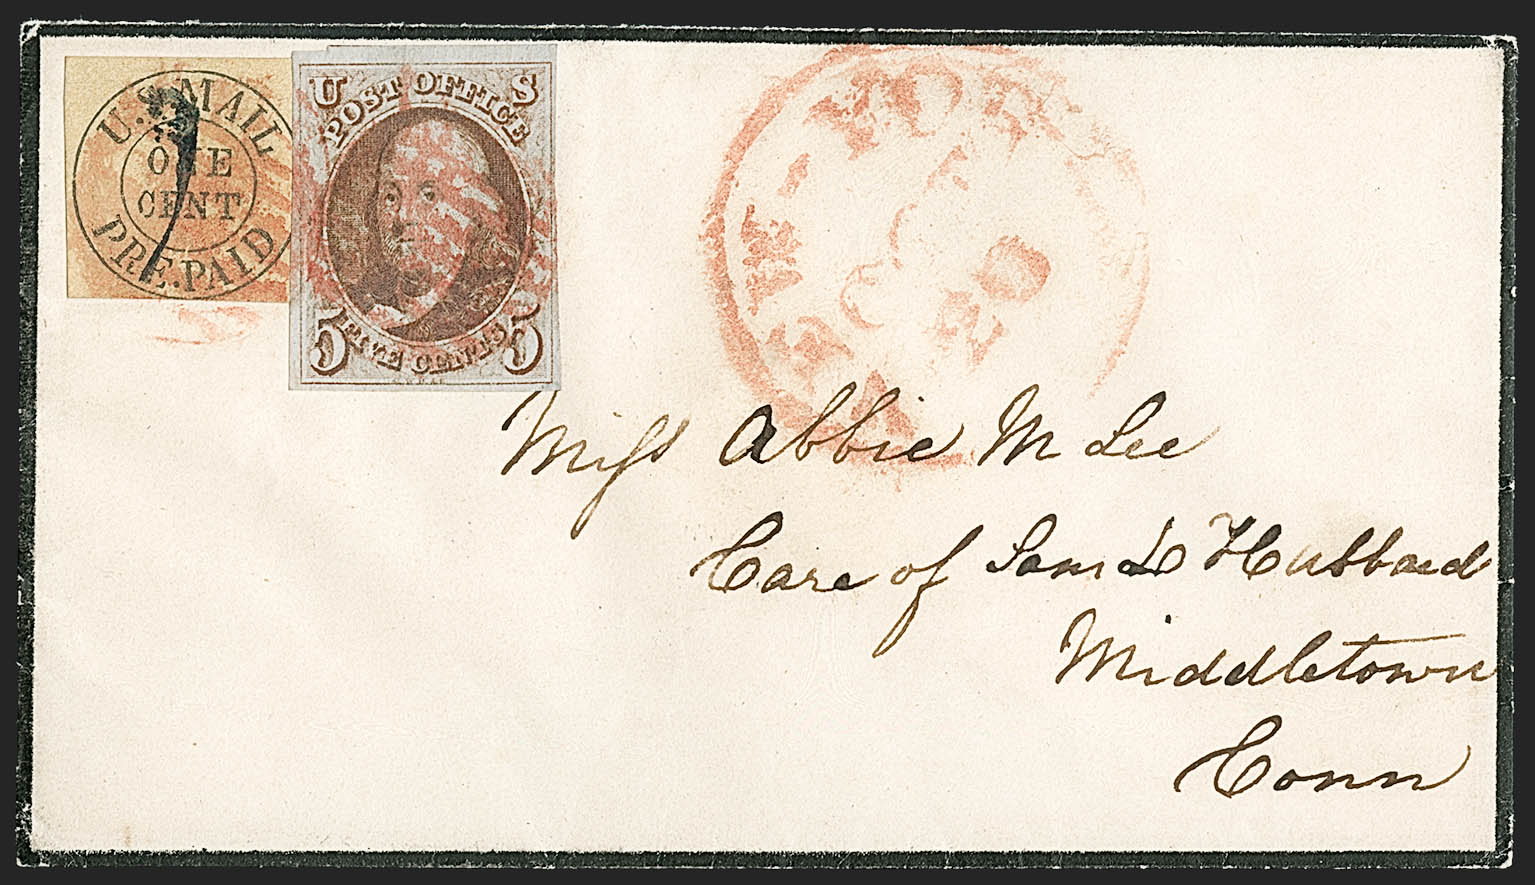 U.S MAIL
ONE
CENT
PRE.PAID
U S
POST OFFICE
FIVE CENTS
5 5
YOR
Miss Abbie M Lee
Care of Sam L Hubbard
Middletown
Conn